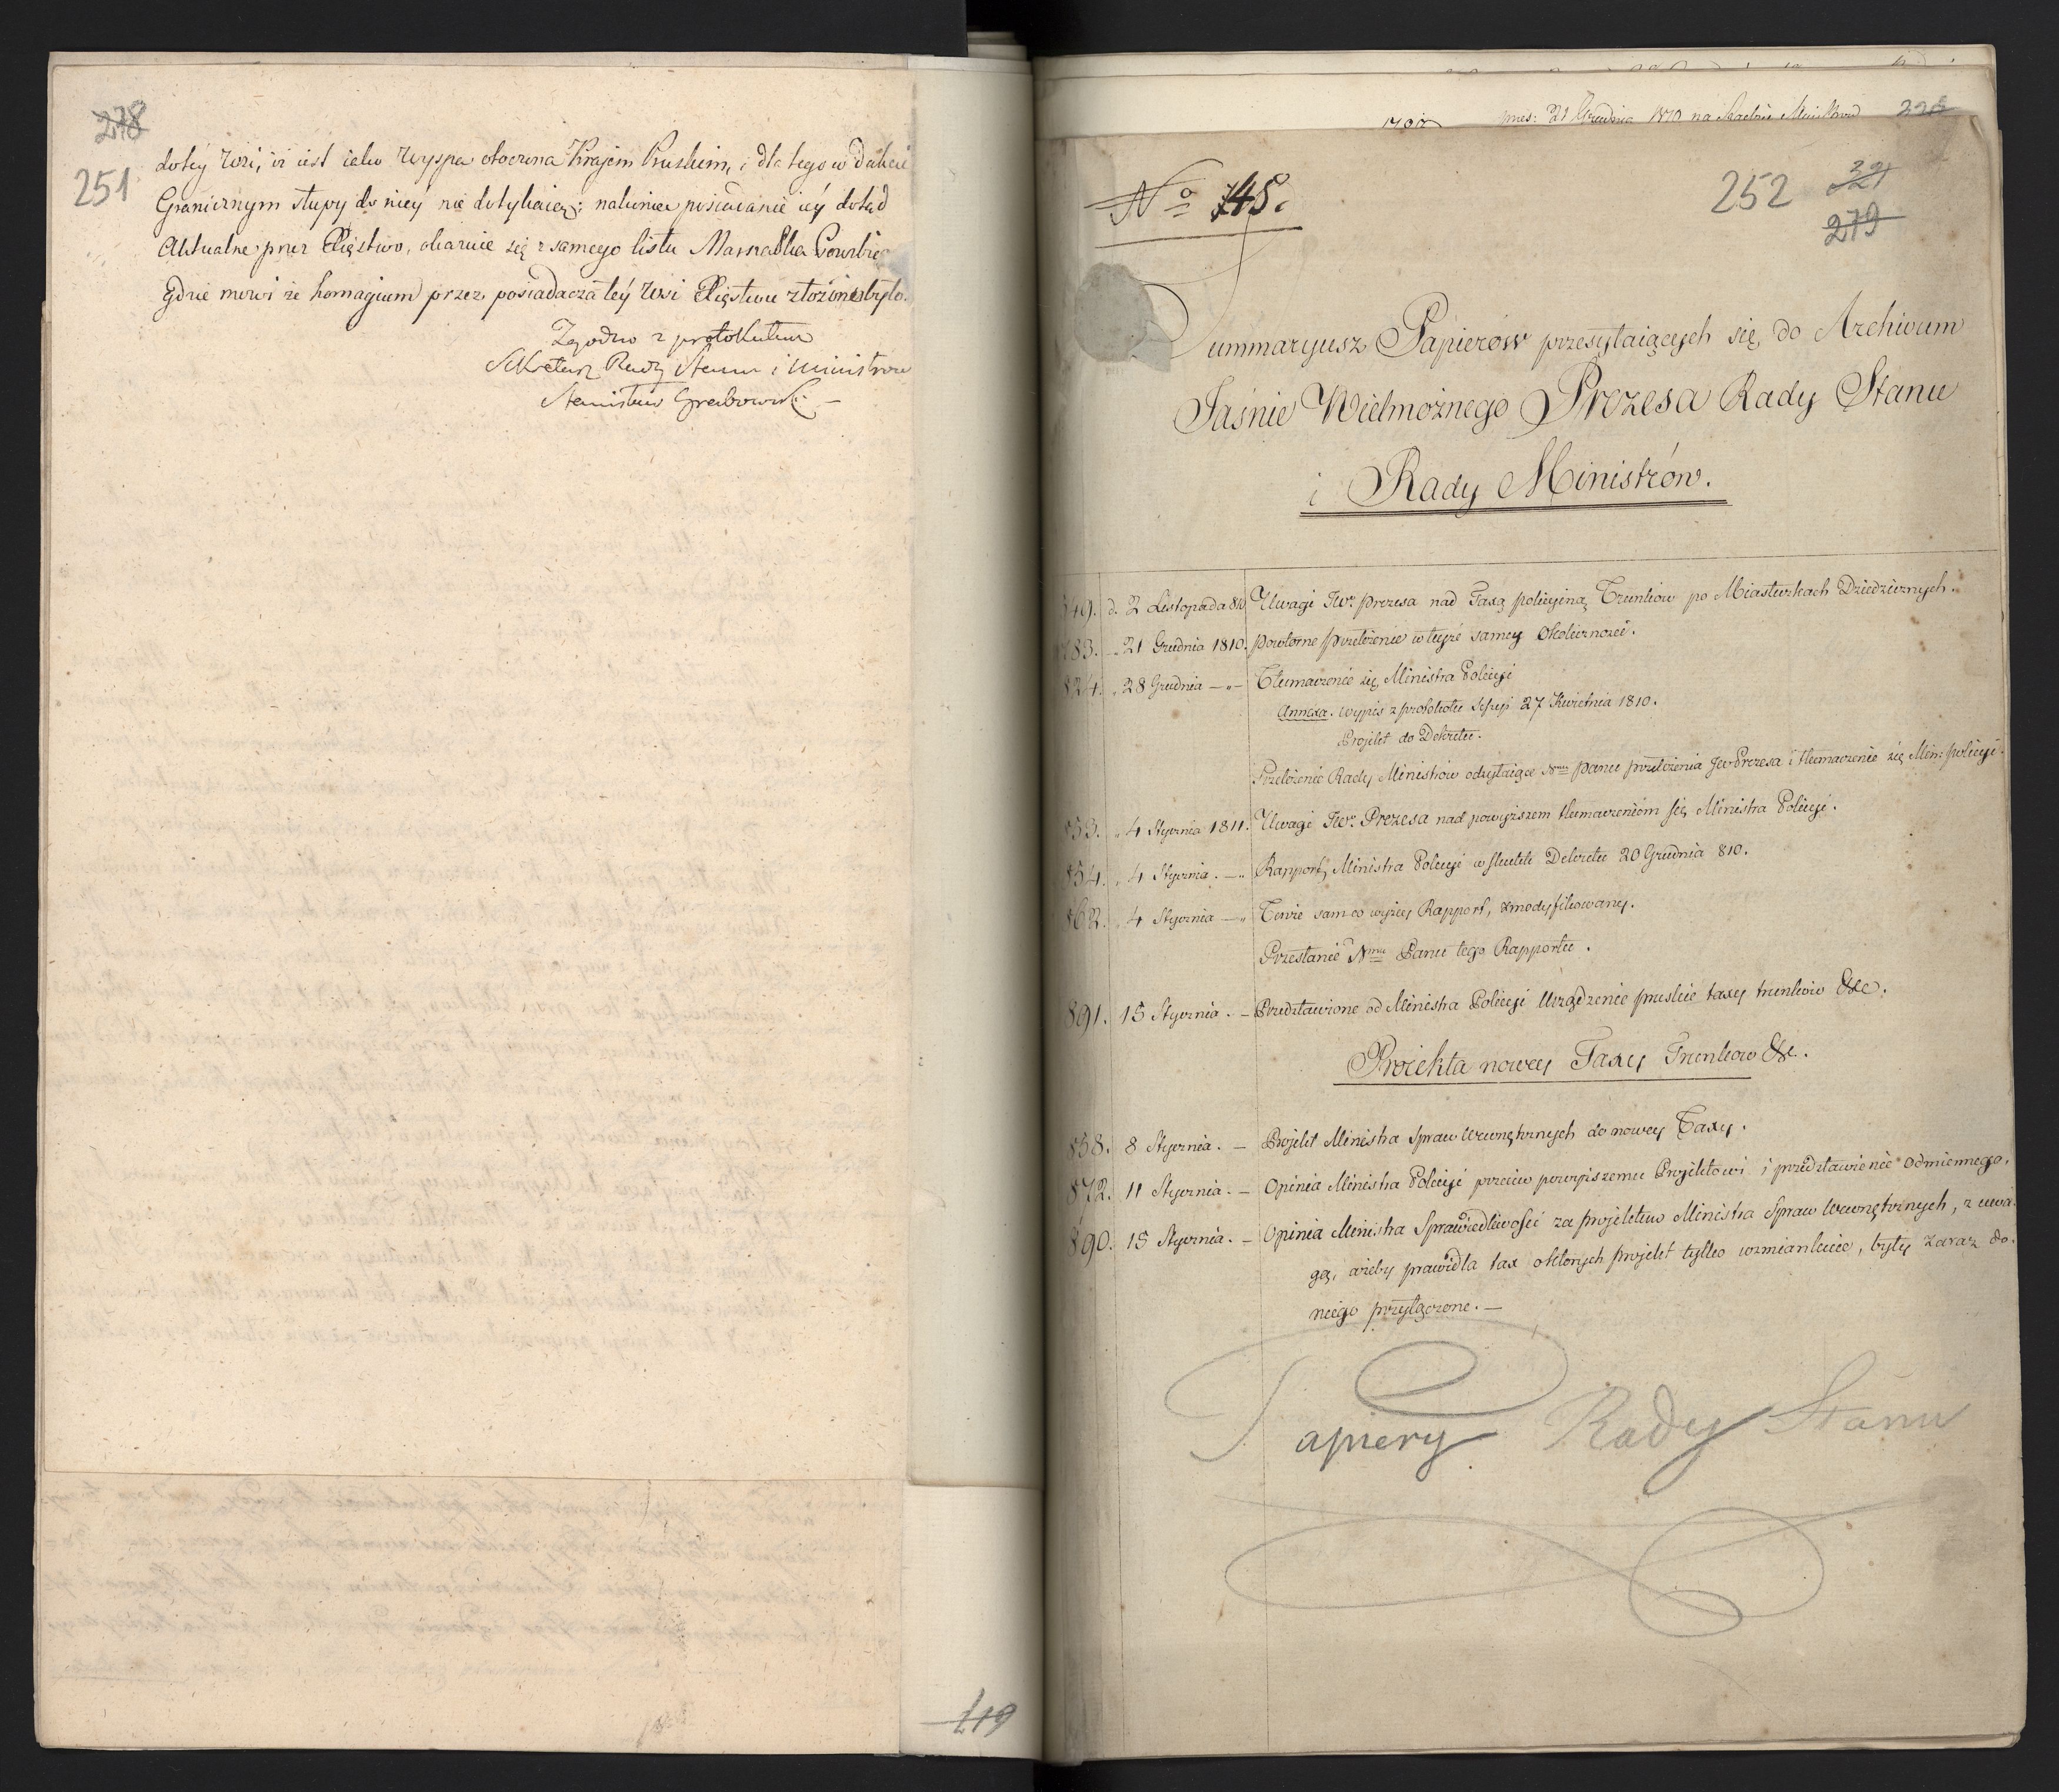 278
251
do tey wsi, iż iest iako wyspa otoczona Kraiem Pruskim, i dla tego w Dukcie
Granicznym słupy do niey nie dotykaią; nakoniec posiadanie iey dotąd
Aktualne przez Xięstwo, okazuie się z samego listu Marszałka
gdzie mowi że homagium przez posiadacza tey wsi Xięstwu złożone było.
Zgodno z protokułem
Sekretarz Rady Stanu i Ministrow
Stanisław Grabowski
419
21 Grudnia 1810 na Radzie Ministrow
No 145.
252 321
279
Summaryusz Papierów przesyłaiących się do Archiwum
Jaśnie Wielmożnego Prezesa Rady Stanu
i Rady Ministrów.
749. d. 2 Listopada 810 Uwagi JWo Prezesa nad Taxą policyiną Trunkow po Miasteczkach Dziedzicznych.
783. 21 Grudnia 1810. Powtorne przełożenie w teyże samey Okoliczności.
824. 28 Grudnia —"— Tłumaczenie się Ministra Policyi
Annexa. wypis z protokołu Sessyi 27 Kwietnia 1810.
Projekt do Dekretu.
Przełożenie Rady Ministrów odsyłaiące Nmu Panu przełożenia JWo Prezesa i tłumaczenie się Min: Policyi.
853. " 4 Stycznia 1811. Uwagi JWo Prezesa nad powyższem tłumaczeniem się Ministra Policyi.
854. " 4 Stycznia. —" Rapport Ministra Policyi w skutek Dekretu 20 Grudnia 810.
862. " 4 Stycznia —" Tenże sam co wyżey Rapport, zmodyfikowany.
Przesłanie Nmu Panu tego Rapportu.
891. 15 Stycznia. — Przedstawione od Ministra Policyi Urządzenie pruskie taxy trunkow &c.
Proiekta nowey Taxy Trunkow &c.
858. 8 Stycznia. — Projekt Ministra Spraw Wewnętrznych do nowey Taxy.
872. 11 Stycznia. — Opinia Ministra Policyi przeciw powyższemu Projektowi i przedstawienie odmiennego.
890. 15 Stycznia. — Opinia Ministra Sprawiedliwości za projektem Ministra Spraw Wewnętrznych, z uwa-
gą, ażeby prawidła tax o których projekt tylko wzmiankuie, były zaraz do
niego przyłączone. —
Papiery Rady Stanu